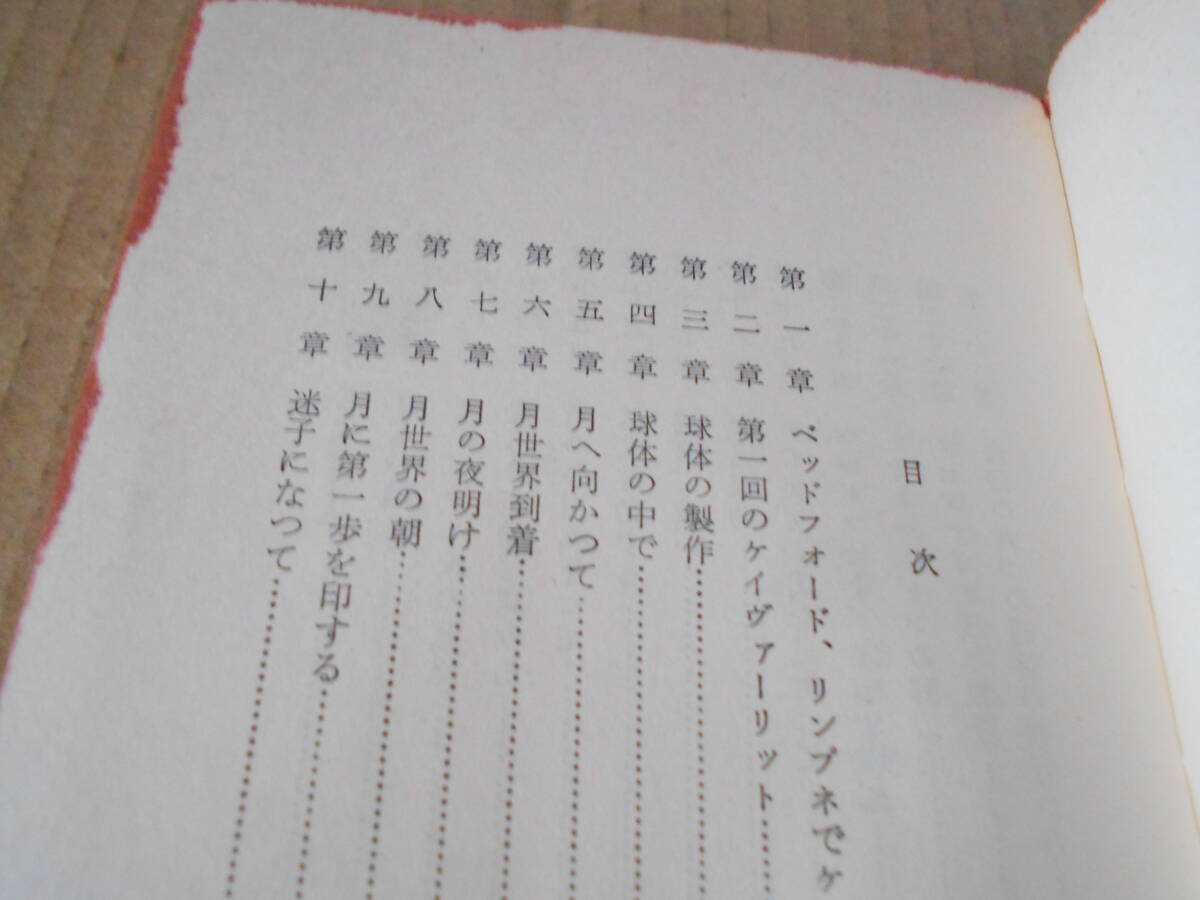 目次
第一章 ベッドフォード、リンプネでケ
第二章 第一回のケイヴァーリット……
第三章 球体の製作……
第四章 球体の中で……
第五章 月へ向かつて……
第六章 月世界到着……
第七章 月の夜明け……
第八章 月世界の朝……
第九章 月に第一歩を印する……
第十章 迷子になつて……